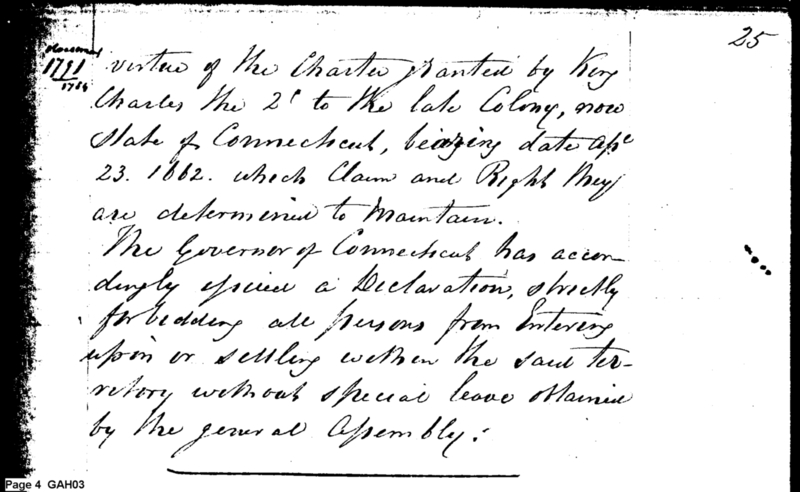 25
1791
1784
virtue of the Charter granted by King
Charles the 2d to the late Colony, now
State of Connecticut, bearing date Apl
23. 1662. which Claim and Right they
are determined to Maintain.
The Governor of Connecticut has accor-
dingly issued a Declaration, strictly
forbidding all persons from Entering
upon or settling within the said ter-
ritory without special leave obtained
by the general Assembly.
Page 4 GAH03